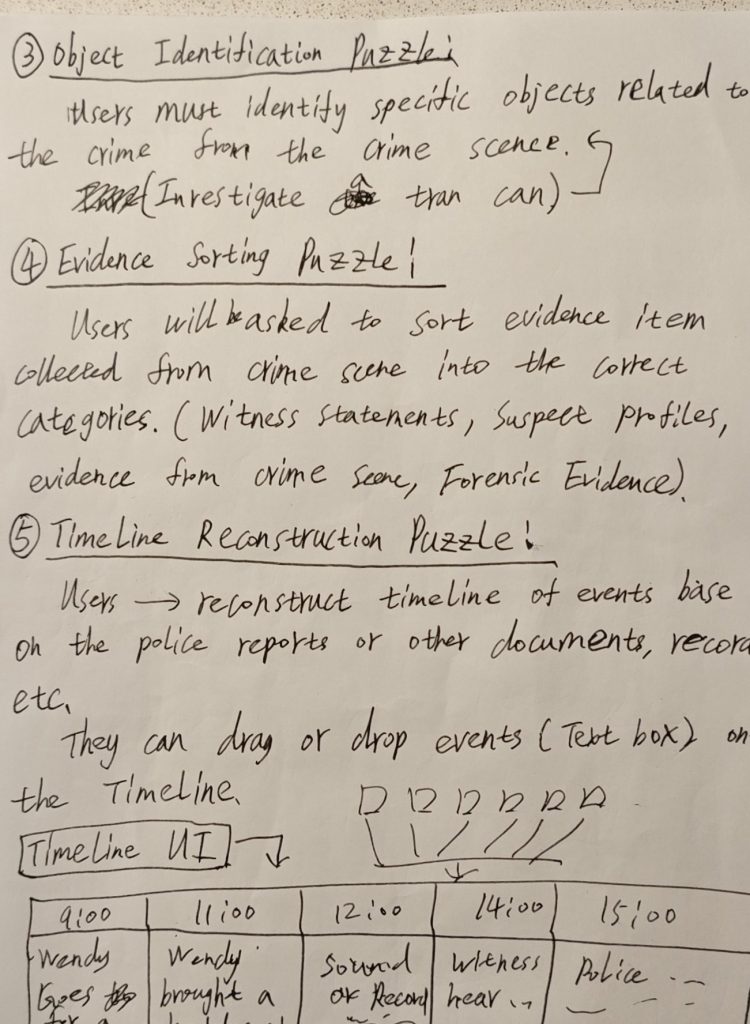 ③ Object Identification Puzzle:
Users must identify specific objects related to
the crime from the crime scence.
(Investigate a tran can)
④ Evidence Sorting Puzzle!
Users will be asked to sort evidence item
collected from crime scene into the correct
categories. (Witness Statements, Suspect Profiles,
evidence from crime scene, Forensic Evidence).
⑤ TimeLine Reconstruction Puzzle!
Users → reconstruct timeline of events base
on the police reports or other documents, record
etc.
They can drag or drop events (Text box) on
the Timeline.
Timeline UI
9:00 11:00 12:00 14:00 15:00
Wendy Wendy Sound Witness Police ...
Goes brought a or Record hear ...
for a